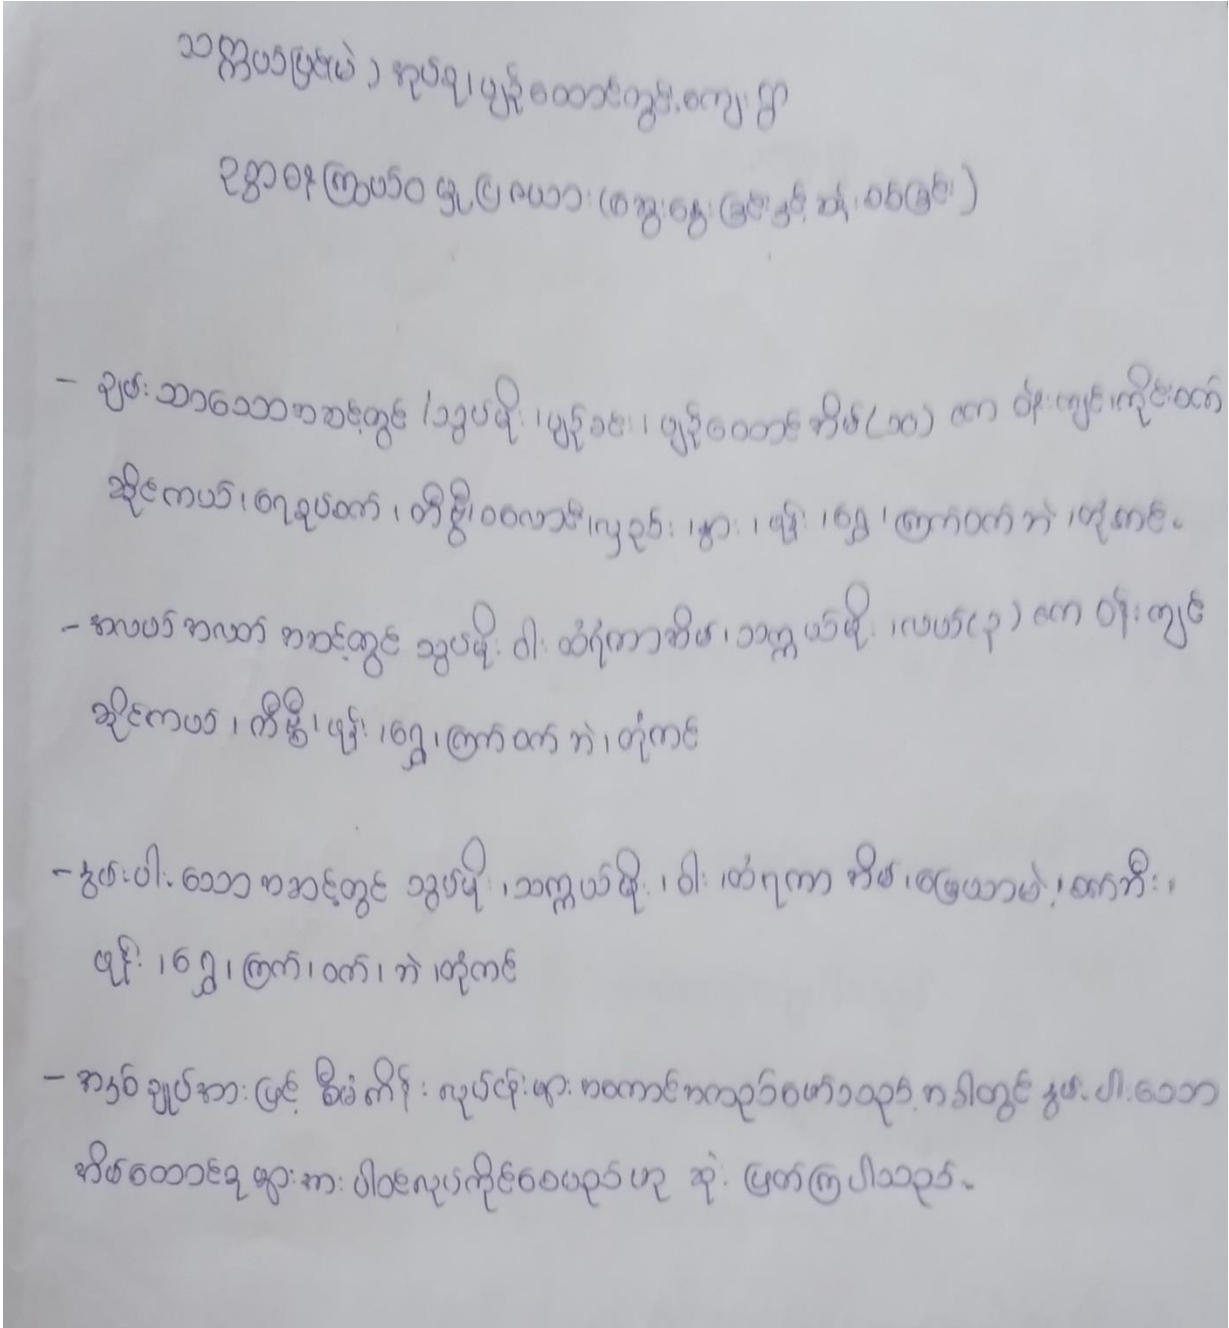 သက္ကယ်ပြင်(မဲ) အုပ်စု၊ ပျဉ်ထောင်တွင်းကျေးရွာ
ဥစ္စာဓန ကြွယ်ဝမှုပြဇယား (ဆွေးနွေးခြင်းနှင့် ဆန်းစစ်ခြင်း)
- ချမ်းသာသောအဆင့်တွင် ၊သွပ်မိုး ၊ပျဉ်ခင်း၊ ပျဉ်ထောင်အိမ်(၁၀) ဧက ဝန်းကျင်၊ ကိုင်းဝက်
ဆိုင်ကယ်၊ ရေစုပ်စက်၊ တီဗွီ၊ စလောင်း၊ လှည်း၊ နွား၊ ဖုန်း၊ ရွှေ၊ ကြက်ဝက်ဘဲ၊ တိုကင်။
- အလယ်အလတ်အဆင့်တွင် သွပ်မိုး ဝါးထံရံကာအိမ်၊ သက္ကယ်မိုး ၊လယ်(၃) ဧက ဝန်းကျင်
ဆိုင်ကယ်၊ တီဗွီ၊ ဖုန်း၊ ရွှေ၊ ကြက်ဝက်ဘဲ၊ တိုကင်
- နွမ်းပါးသောအဆင့်တွင် သွပ်မိုး ၊သက္ကယ်မိုး ၊ဝါးထံရံကာအိမ်၊ မြေယာမဲ့၊ စက်ဘီး၊
ဖုန်း၊ ရွှေ၊ ကြက်၊ ဝက်၊ ဘဲ၊ တိုကင်
- အနှစ်ချုပ်အားဖြင့် စီမံကိန်းလုပ်ငန်းများ အကောင်အထည်ဖော်သည့်အခါတွင် နွမ်းပါးသော
အိမ်ထောင်စုများအား ပါဝင်လုပ်ကိုင်စေမည်ဟု ဆုံးဖြတ်ကြပါသည်။